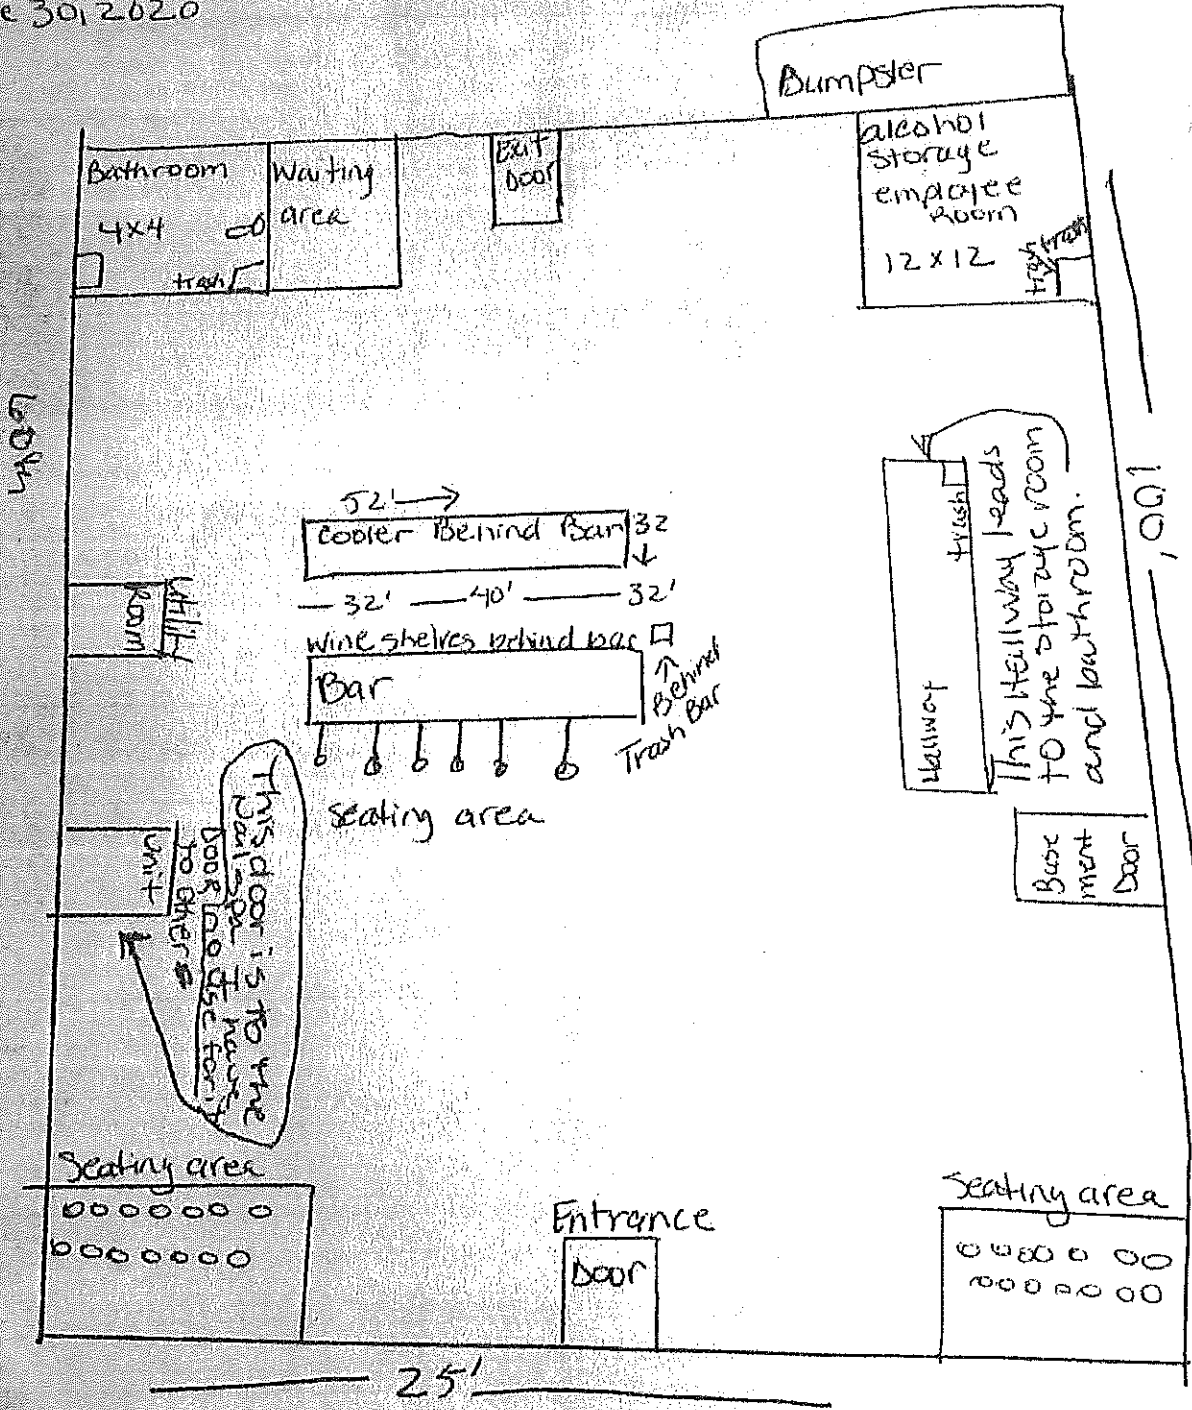 e 30, 2020
Dumpster
Bathroom
4x4
trash
Waiting
area
Exit
Door
alcohol
storage
employee
Room
12 x 12
trash
trash
52'
Cooler Behind Bar
32
32' 40' 32'
wine shelves behind bar
Bar
Behind
Trash Bar
seating area
Utility
Room
Unit
This door is to the
Nail spa I have
no use for it
Door
to other
Hallway
trash
This Hallway leads
to the storage room
and bathroom.
100'
Base
ment
Door
Seating area
Entrance
Door
Seating area
25'